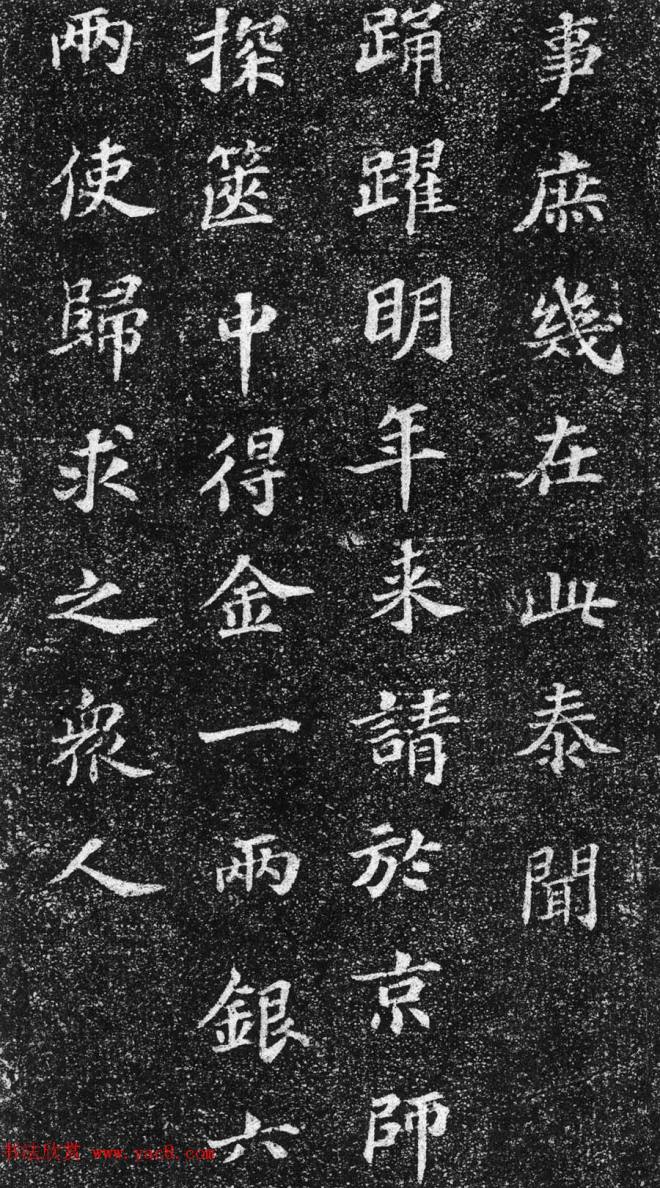 事庶幾在此泰聞
踊躍明年来請於京師
探篋中得金一兩銀六
兩使歸求之衆人
书法欣赏 www.yac8.com